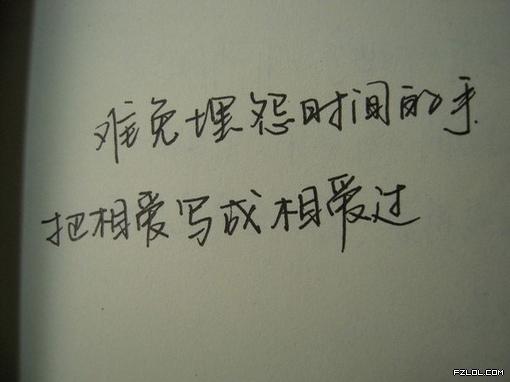 难免埋怨时间的手
把相爱写成相爱过
FZLOL.COM